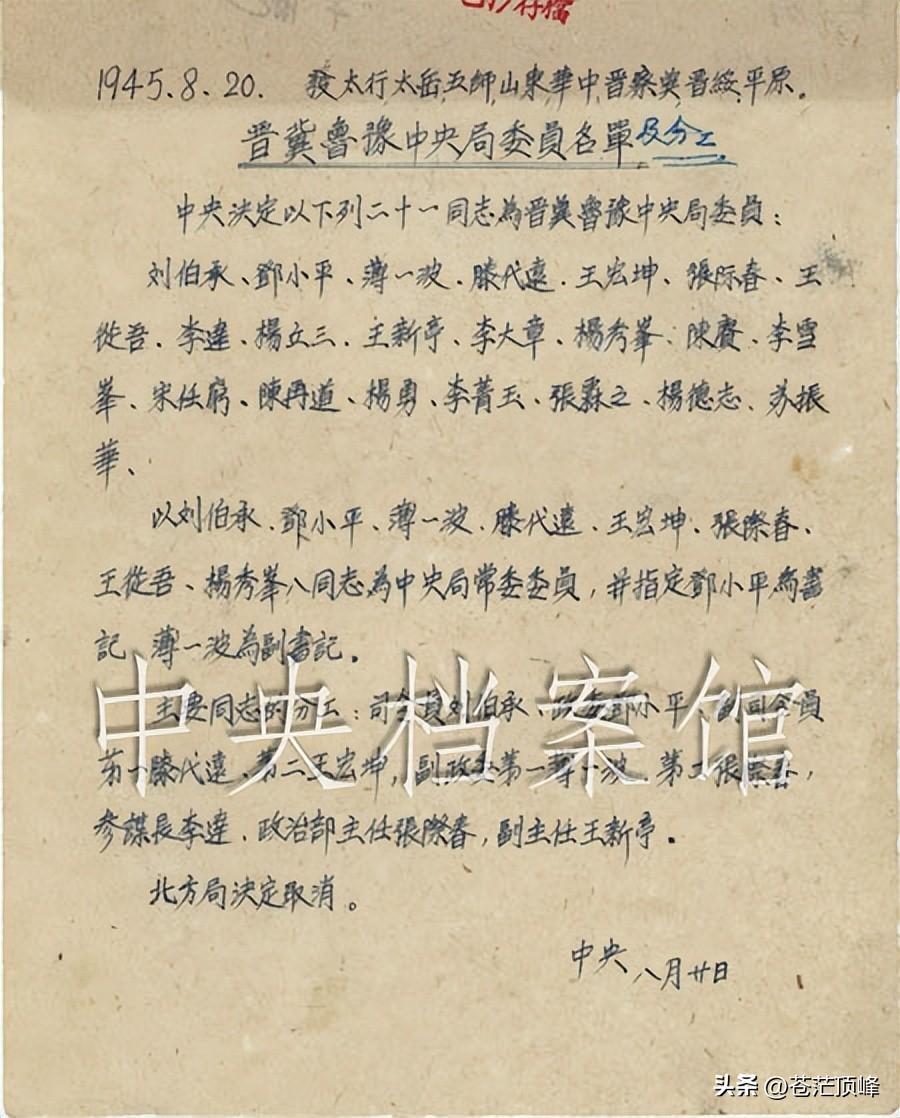 已抄存檔
1945.8.20. 發太行太岳五師山東華中晋察冀晋綏平原。
晋冀魯豫中央局委員名單及分工
中央決定以下列二十一同志為晋冀魯豫中央局委員：
刘伯承、鄧小平、薄一波、滕代遠、王宏坤、張际春、王
從吾、李達、楊立三、王新亭、李大章、楊秀峯、陳賡、李雪
峯、宋任窮、陳再道、楊勇、李菁玉、張霖之、楊德志、苏振
華、
以刘伯承、鄧小平、薄一波、滕代遠、王宏坤、張際春、
王從吾、楊秀峯八同志為中央局常委委員，并指定鄧小平為書
記 薄一波為副書記。
主要同志的分工：司令員刘伯承、政委鄧小平、副司令員
第一滕代遠、第二王宏坤，副政委第一薄一波、第二張際春，
参謀長李達、政治部主任張際春，副主任王新亭。
北方局決定取消。
中央 八月廿日
中央档案馆
头条 @苍茫顶峰